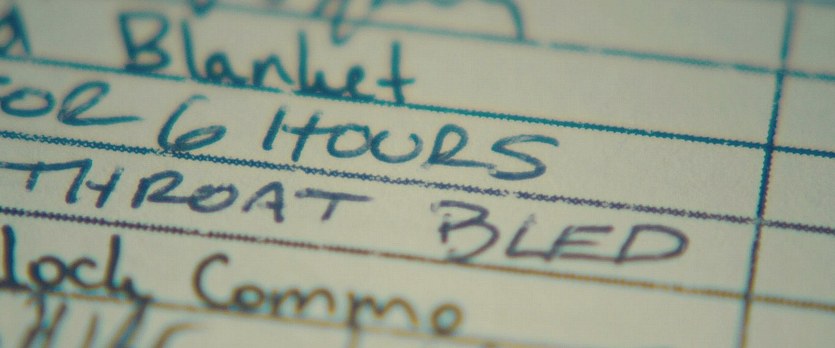 Blanket
FOR 6 HOURS
THROAT BLED
lock Commo